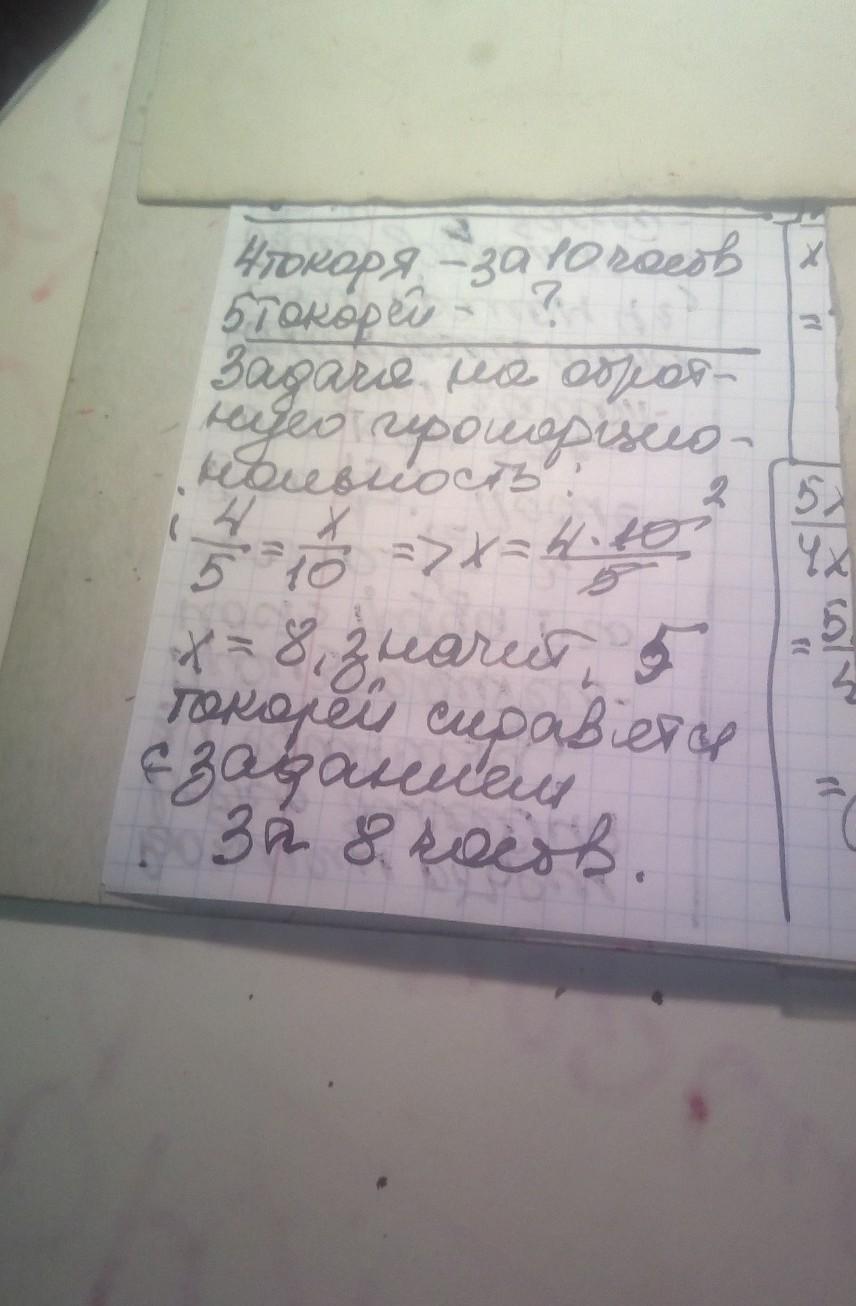 4 токаря – за 10 часов
5 токарей – ?
Задача на обрат-
ную пропорцио-
нальность:
4/5 = x/10 => x = 4·10/5 2
x = 8, значит, 5
токарей справятся
с заданием
за 8 часов.
x
=
5x
4x
= 5
4
= (